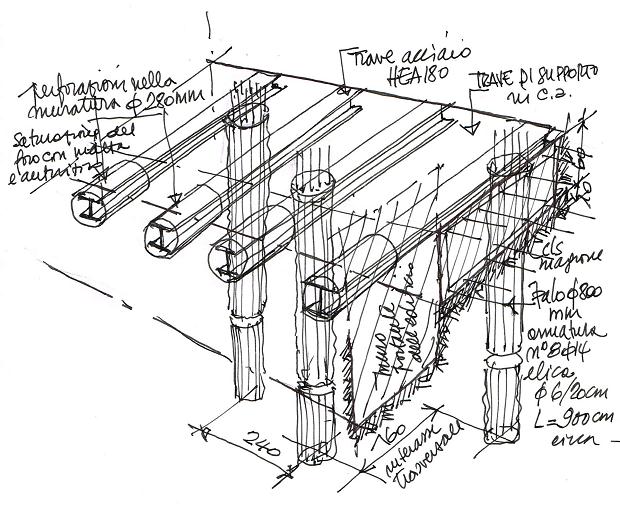 perforazioni nella
muratura φ 280mm
saturazione del
foro con malta
Trave acciaio
HEA180
TRAVE DI SUPPORTO
in c.a.
cls
magrone
Palo φ800
mm
armatura
n°8φ14
elica
φ6/20cm
L=900cm
circa
muro
frontale
dell'edificio
240
760
interassi
trasversale